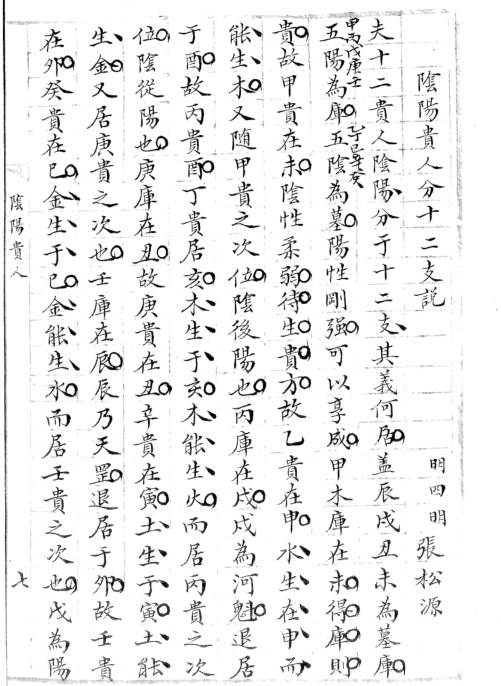 陰陽貴人分十二支説
明四明張松源
夫十二貴人陰陽分于十二支其義何居蓋辰戌丑未為墓庫
甲丙戊庚壬
五陽為庫
乙丁己辛
五陰為墓陽性剛强可以享成甲木庫在未得庫則
貴故甲貴在未陰性柔弱待生貴方故乙貴在申水生在申而
能生木又随甲貴之次位陰後陽也丙庫在戌戌為河魁退居
于酉故丙貴酉丁貴居亥木生于亥木能生火而居丙貴之次
位陰從陽也庚庫在丑故庚貴在丑辛貴在寅土生于寅土能
生金又居庚貴之次也壬庫在辰辰乃天罡退居于卯故壬貴
在卯癸貴在巳金生于巳金能生水而居壬貴之次也戊為陽
陰陽貴人
七